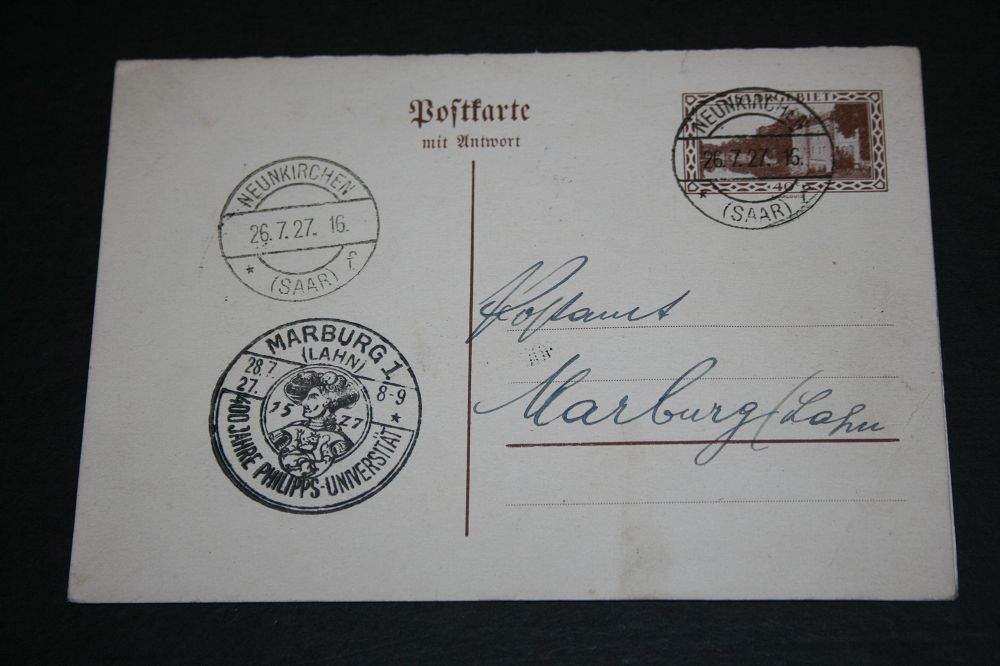 Postkarte
mit Antwort
SAARGEBIET
40
NEUNKIRCHEN
26.7.27. 16.
* (SAAR) f
NEUNKIRCHEN
26.7.27. 16.
* (SAAR) f
MARBURG 1.
(LAHN)
28.7.
27. 8-9
1527
400 JAHRE PHILIPPS-UNIVERSITÄT *
Postamt
Marburg (Lahn